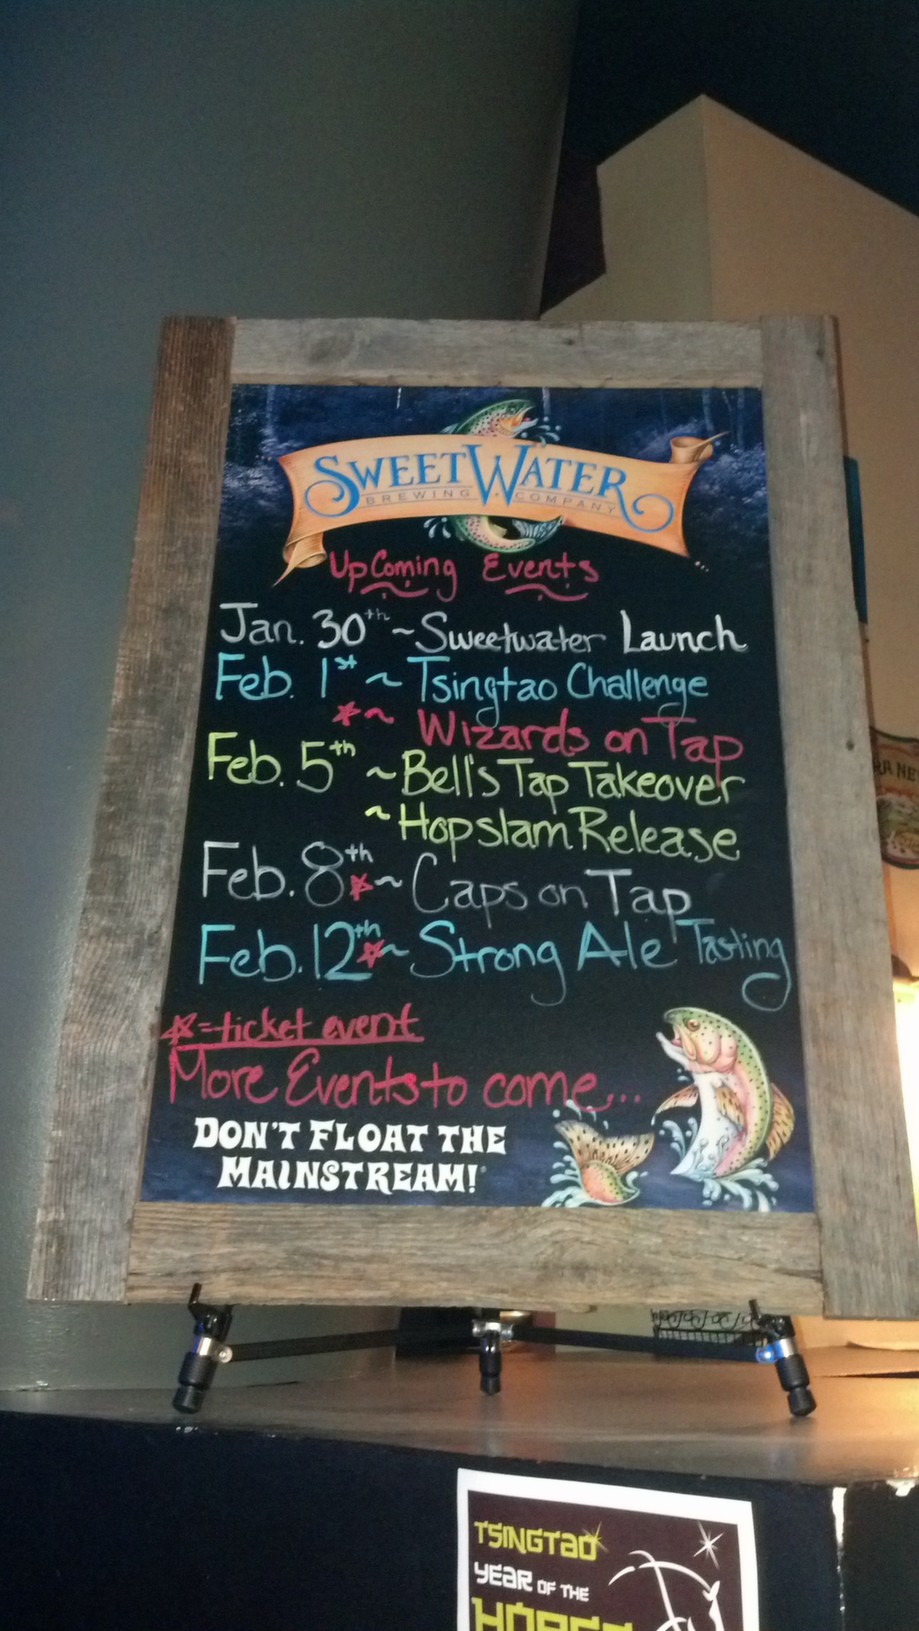 SWEETWATER
BREWING COMPANY
UpComing Events
Jan. 30th ~ Sweetwater Launch
Feb. 1st ~ Tsingtao Challenge
☆~ Wizards on Tap
Feb. 5th ~ Bell's Tap Takeover
~ Hopslam Release
Feb. 8th ☆~ Caps on Tap
Feb. 12th ☆~ Strong Ale Tasting
☆=ticket event
More Events to come...
DON'T FLOAT THE
MAINSTREAM!
TSINGTAO
YEAR OF THE
HORSE